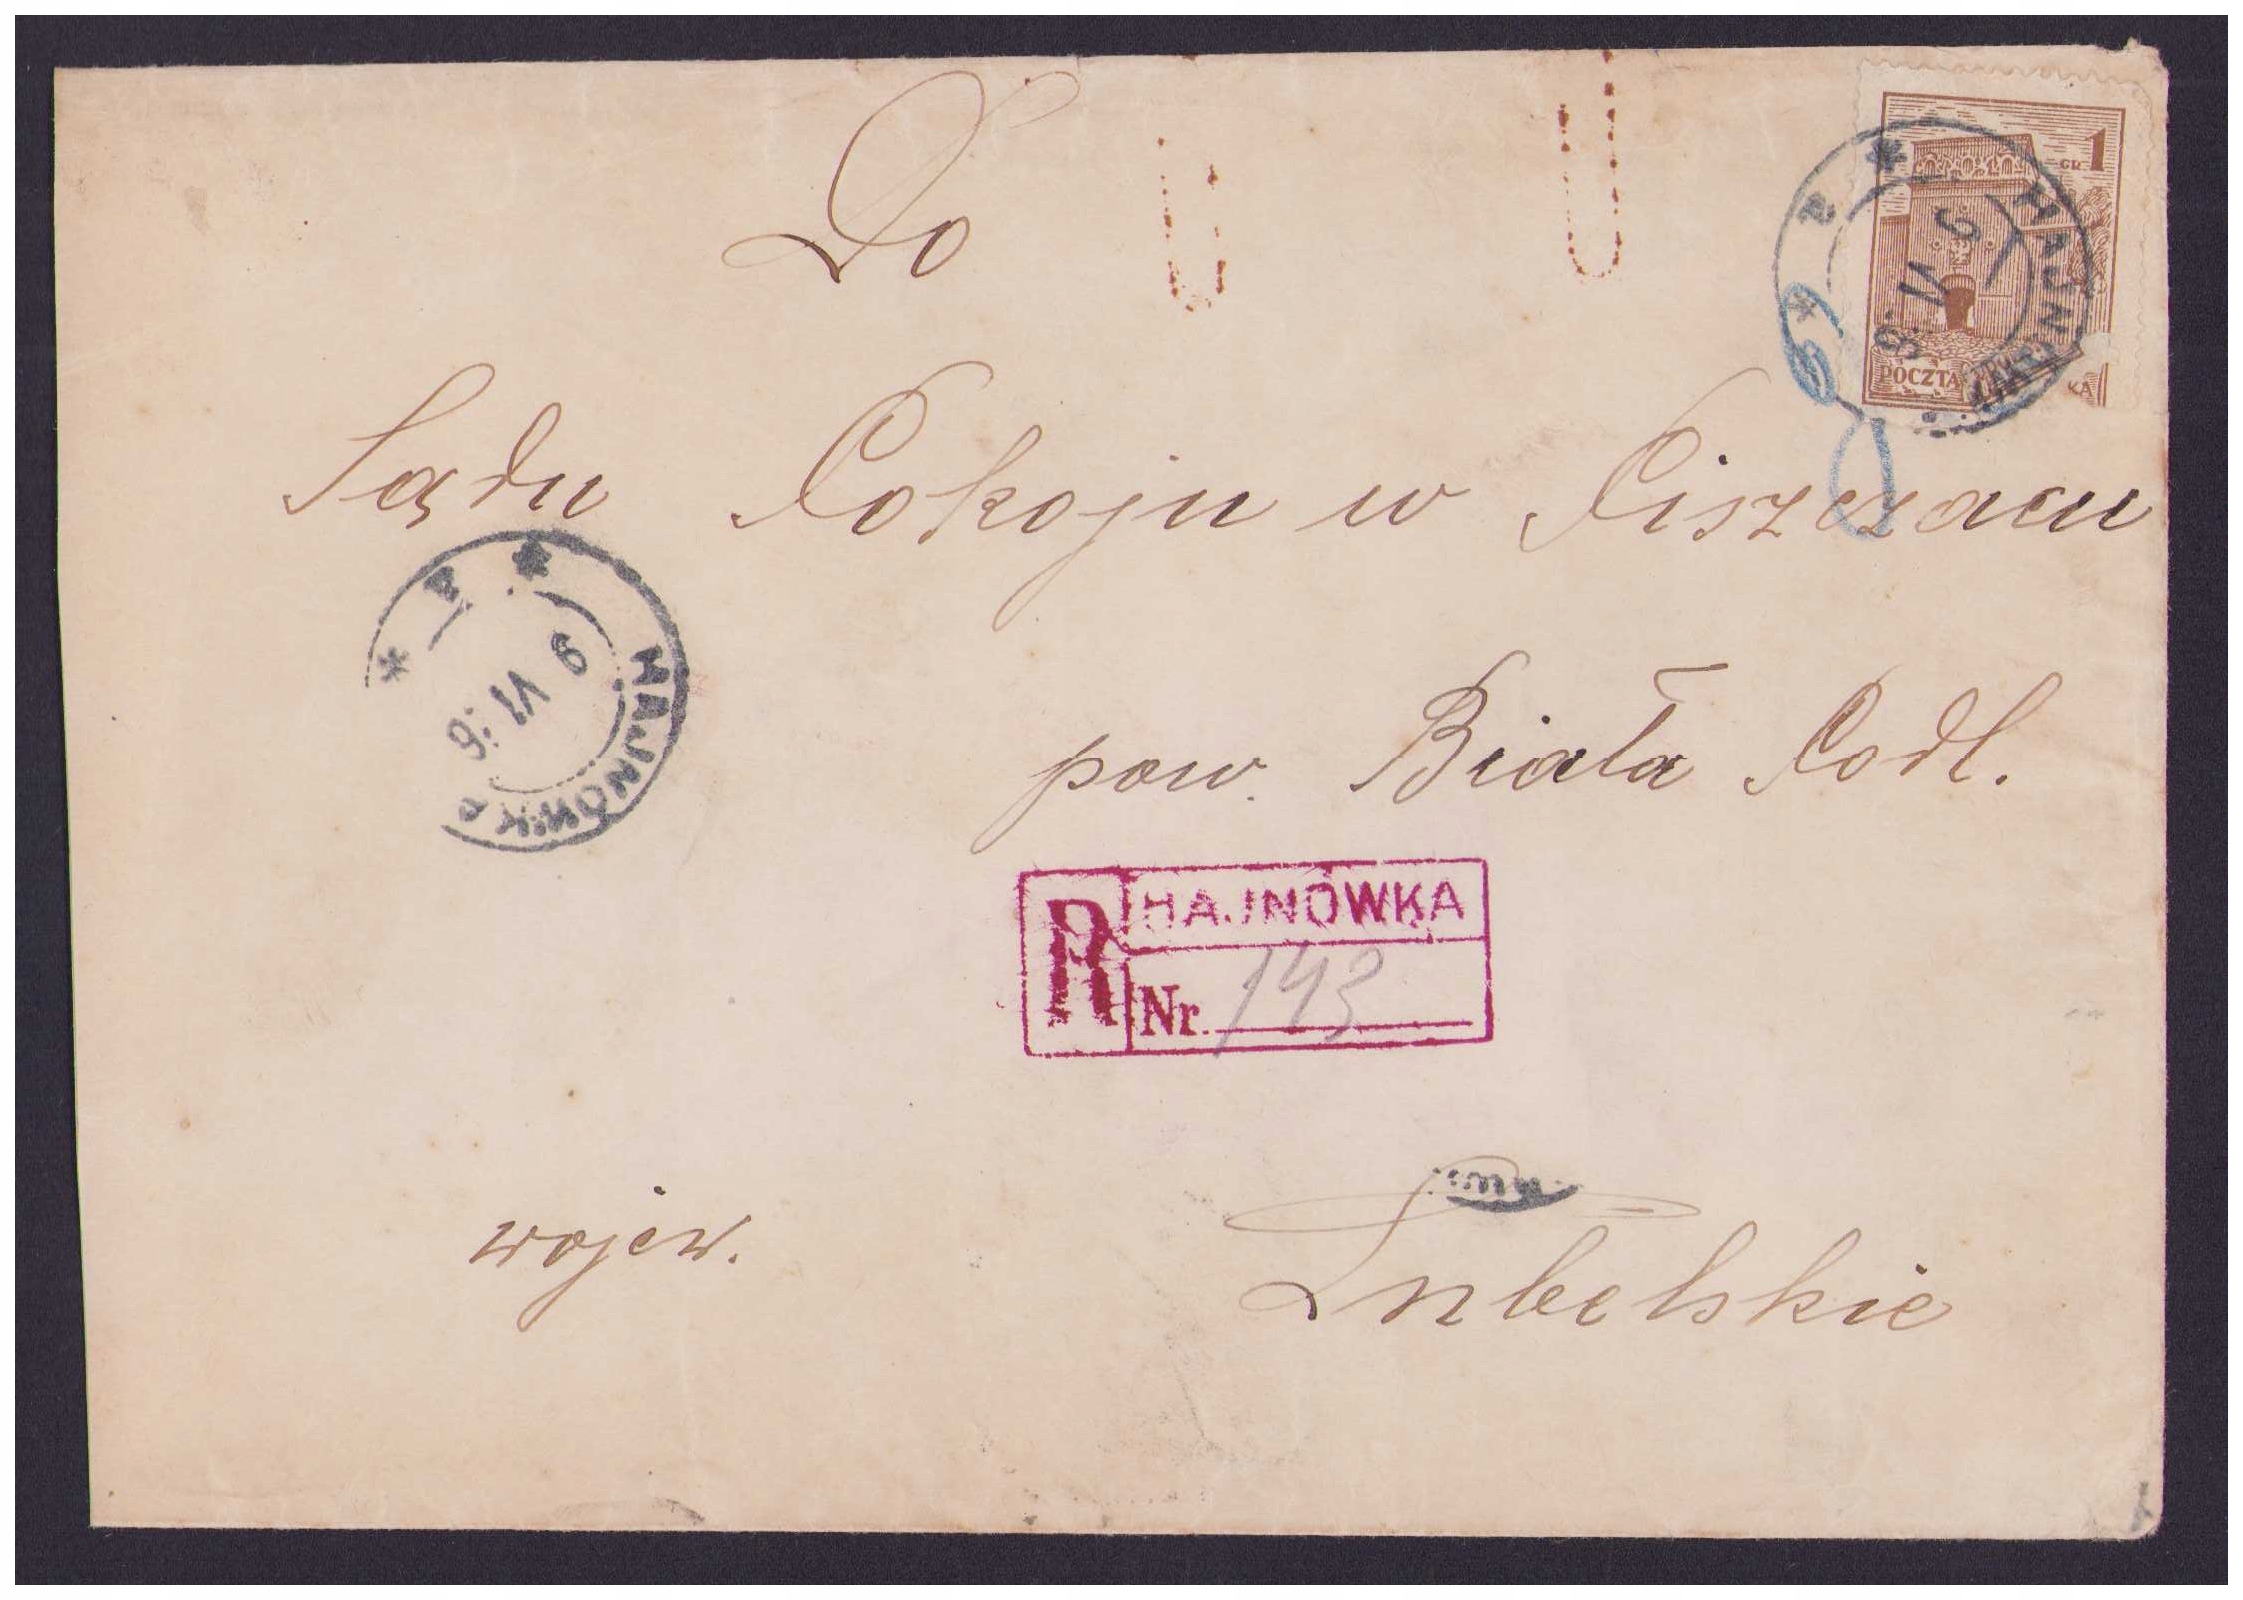 Do
GR. 1
POCZTA KA
HAJN
9 VI
Sądu Pokoju w Piszczacu
* a *
HAJNÓWKA
9 VI
pow. Biała Podl.
R HAJNÓWKA
Nr. 143
wojew. Lubelskie